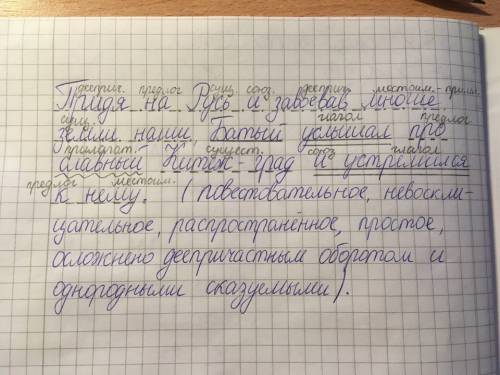 дееприч. предлог сущ. союз. дееприч. мостоим.-прилаг.
Придя на Русь и завоевав многие
сущ. глагол предлог
земли наши, Батый услышал про
прилагат. существ. союз. глагол
славный Китеж-град и устремился
предлог местоим.
к нему. (повествовательное, невоскли-
цательное, распространённое, простое,
осложнено деепричастным оборотом и
однородными сказуемыми).